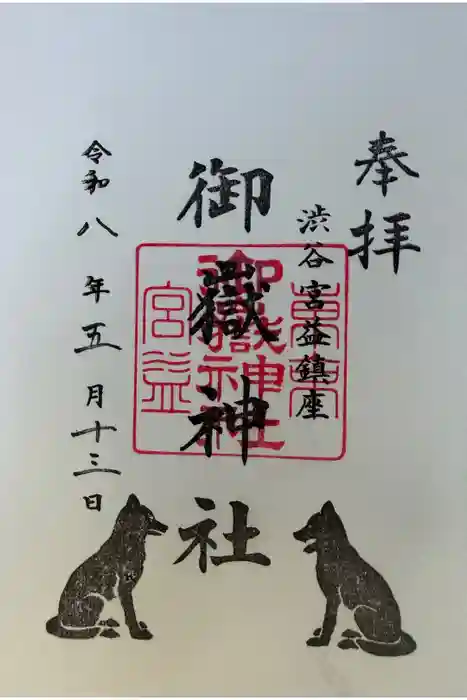 奉拝
渋谷宮益鎮座
御嶽神社
令和八年五月十三日
宮益
御嶽神社